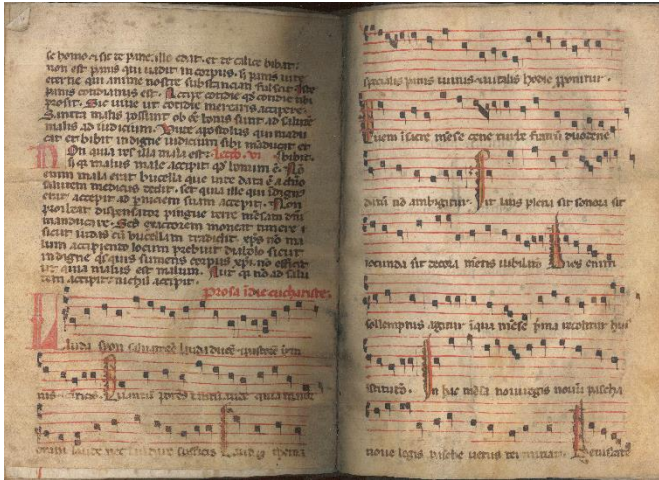 se homo et sic de pane illo edat et de calice bibat.
non est panis qui vadit in corpus. s; panis vite
eterne qui anime nostre substanciam fulcit. Iste
panis cotidianus est. Accipe cotidie qd cotidie tibi
prosit. Sic vive ut cotidie merearis accipere.
Sancta malis possunt obee bonis sunt ad salutē
malis ad iudicium. Unde apostolus qui mandu
cat et bibit indigne iudicium sibi māducat et
Non quia res illa mala est. Lectio. vi. bibit.
s; q malus male accipit qd bonum ē. Nō
enim mala erat bucella que iude data ē a
salutem medicus dedit. set quia ille qui īdignus
erat accepit ad perniciem suam accepit. Non
manducire.
sicut iudas cū bucellam tradidit xps nō ma
lum accipiendo locum prebuit diabolo sicut
indigne qs quis sumens corpus xpi. nō efficit
ut quia malus est malum. Aut q nō ad salu
tem accipit nichil accipit.
Prosa ī die eucharistie.
Lauda syon salvatorē lauda ducē et pastorē ī ym
nis et canticis. Quantum potes tantum aude quia maior
omni laude nec laudare sufficis Laudis thema
specialis panis vivus et vitalis hodie pponitur.
Quem ī sacre mēse cene turbe fratrū duodene
datū nō ambigitur. Sit laus plena sit sonora sit
iocunda sit decora mētis iubilatio Dies enim
sollempnis agitur ī qua mēse p̄ma recolitur hui
īstitutō. In hac mēsa novi regis novū pascha
nove legis pasche vetus terminat. Vetustatē